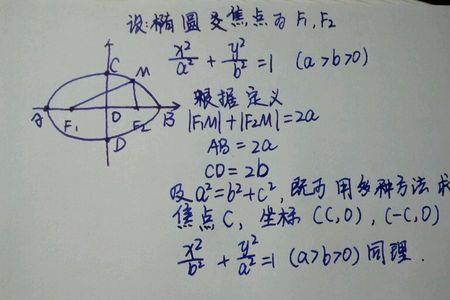 设:椭圆交焦点为 F₁, F₂
x²/a² + y²/b² = 1 (a>b>0)
C M
A F₁ O F₂ B
D
根据定义
|F₁M|+|F₂M|=2a
AB=2a
CD=2b
及a²=b²+c²,既可用多种方法求
焦点C, 坐标(C,0),(-C,0)
x²/b² + y²/a² = 1 (a>b>0) 同理.